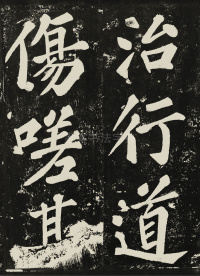 治行道
傷嗟甘